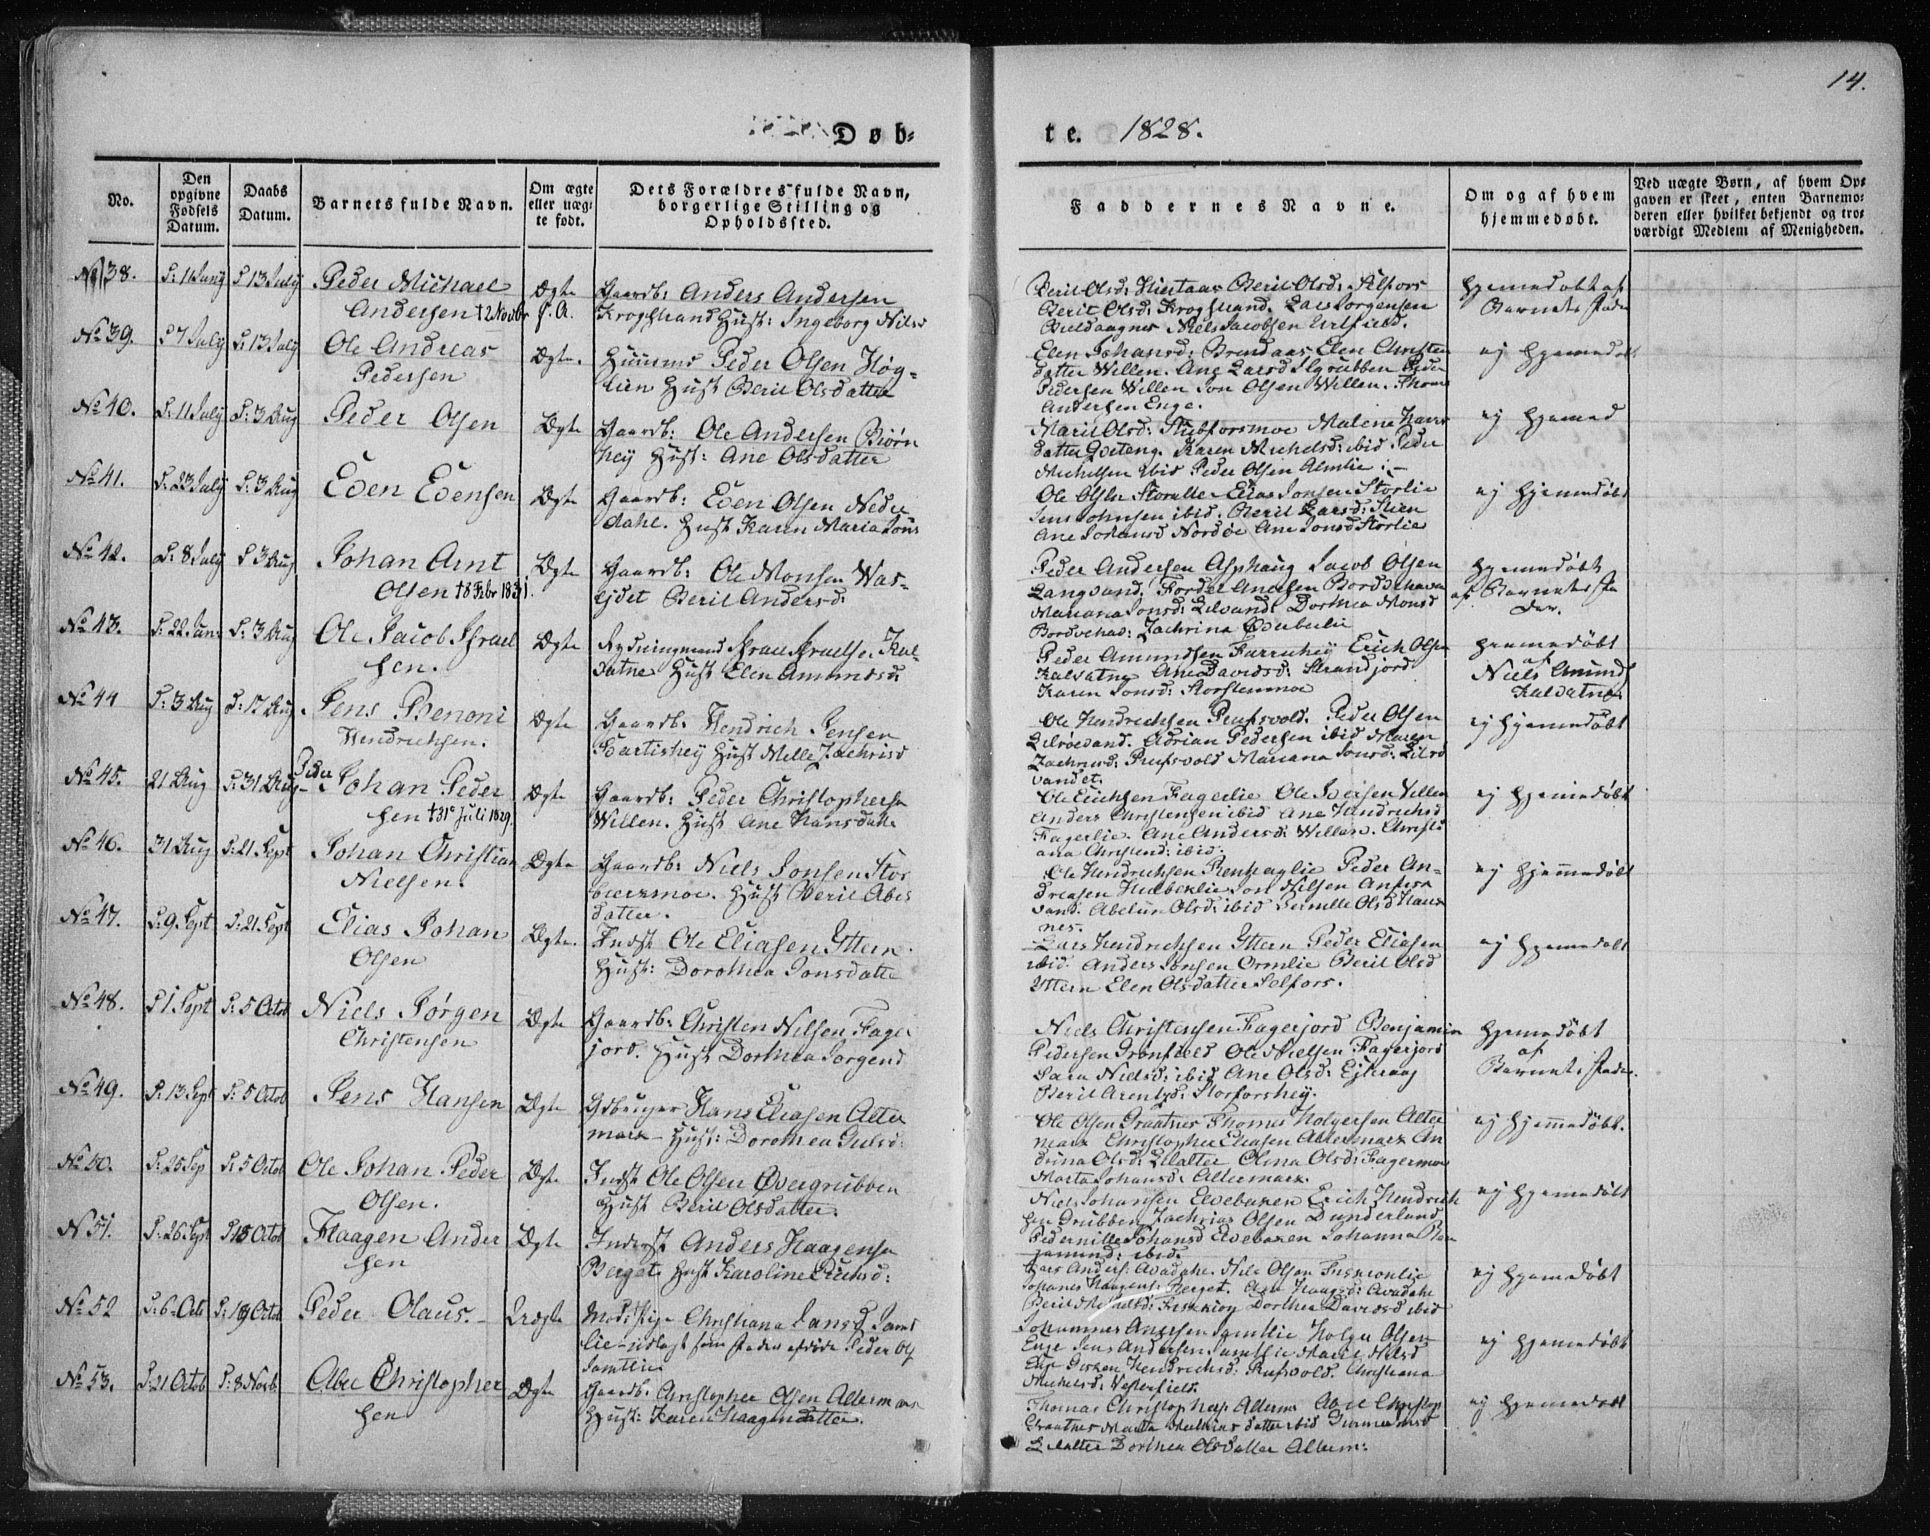 14.
Døb- te. 1828.
No.
Den opgivne Fødsels Datum.
Daabs Datum.
Barnets fulde Navn.
Om ægte eller uægte født.
Dets Forældres fulde Navn, borgerlige Stilling og Opholdssted.
Faddernes Navne.
Om og af hvem hjemmedøbt.
Ved uægte Børn, af hvem Opgaven er skeet, enten Barnemoderen eller hvilket bekjendt og troværdigt Medlem af Menigheden.
No 38. D: 11 Juny D 13 July Peder Michael Ægte Gaardb: Anders Andersen
Andersen † 2 Novbr s. A. Krogstrand Hust: Ingeborg Nilsd
Berit Olsd: Krogstrand. Lars Jorgensen
Hjemmedøbt af
Barnets Fader
No 39. D 7 July D: 13 July Ole Andreas Ægte. Huusmd Peder Olsen Høg-
Pedersen lien Hust Beril Olsdatter
Elen Johansd: Brendaas, Elen Christen
datter Willen. Ane Larsd
Pedersen Willen Jon Olsen Willen. Thomas
Andersen Enge.
ej hjemedøbt
No 40. D: 11 July D: 3 Aug Peder Olsen Ægte Gaardb: Ole Andersen Biørn
hey Hust: Ane Olsdatter
Michelsen ibid Peder Olsen Almlie
ej hjemed
No 41. D: 23 July D: 3 Aug Eden Edensen Ægte Gaardb: Eden Olsen Neder
dahl. Hust Karen Maria Jons
Ole Olsen Storalter Elias Jonsen Storlie
Jens Johnsen ibid. Beril Larsd:
Ane Johansd Nordøe Ane Jonsd Storlie
ej hjemmedøbt
No 42. D: 8 July D 3 Aug Johan Arnt Ægte Gaardb: Ole Monsen Was-
Olsen † 8 Febr ejdet Beril Andersd:
Peder Andersen Asphaug Jacob Olsen
Langvand.
Mariana Jonsd: Lilvand Dorthea Monsd
hjemmedøbt
af Barnets Fa
der.
No 43. D: 22 Jun: D: 3 Aug Ole Jacob Israel Ægte Rydningsmand Israel Israelsen Kal-
sen. vatne Hust Elen Amundsd
Peder Amundsen Erich Olsen
Kalvatne Ane Davidsd: Strandjord
Karen Jonsd: Storstenmoe
hjemmedøbt
af
Niels Amunds
Kalvatne
No 44 D: 3 Aug D: 17 Aug. Jens Benoni Ægte Gaardb. Hendrich Jensen
Hendrichsen. Hust Melle Zachrisd
Ole Hendrichsen Rufsvold. Peder Olsen
Lilrøevand. Adrian Pedersen ibid Maren
Zachrisd: Rufsvold Mariana Jonsd: Lilrø
vandet.
ej hjemmedøbt
No 45. 21 Aug D: 31 Aug Peder Johan Peder Ægte Gaardb: Peder Christophersen
sen † 31 Juli 1829. Willen. Hust Ane Hansdatter
Ole Erichsen Fagerlie Ole Iversen Villen
Anders Christensen ibid Ane Hendrichsd
Fagerlie. Ane Andersd: Willen. Christi
ana Christend: ibid:
ej hjemmedøbt
No 46. 31 Aug D: 21 Sept Johan Christian Ægte Gaardb: Niels Jonsen Stor
Nielsen. Hust Beril Abels
datter.
Ole Hendrichsen Peder An-
dreasen Jon Nilsen
vand. Abelun Olsd: ibid Pernille Olsd Han
nes.
ej hjemmedøbt
No 47. D: 9 Sept D: 21 Sept Elias Johan Ægte. Indst Ole Eliasen Yttern.
Olsen Hust: Dorothea Jonsdatter
Lars Hendrichsen Yttern Peder Eliasen
ibid. Anders Jonsen Ormlie Beril Olsd
Yttern Elen Olsdatter Selfors.
ej hjemedøbt
No 48. D 1 Sept D: 5 Octob Niels Jørgen Ægte Gaardb: Christen Nilsen Fager
Christensen jord. Hust Dorthea Jorgend
Niels Christensen Fagerjord Benjamin
Pedersen Grønfield Ole Nielsen Fagerjord
Sara Nielsd: ibid Ane Olsd:
Beril Arentzd: Storforshey.
hjemedøbt
af
Barnets Fader.
No 49. D: 13 Sept D: 5 Octob Jens Hansen Ægte Gdbruger Hans Eliasen Alter
mark Hust: Dorothea
Ole Olsen Graatnes Thomes Holgersen Alter
mark Christopher Eliasen Altermark An
drina Olsd: Lilalter Olina Olsd: Fagermoe
Marta Johansd: Altermark.
ej hjemmedøbt.
No 50. D: 25 Sep D: 5 Octob Ole Johan Peder Ægte Indst Ole Olsen Øvergrubben
Olsen. Hust Beril Olsdatter.
Niels Johansen Evebaken Erich Hendrich
sen Grubben Zachrias Olsen Dunderland
Pedernille Johansd Evebaken Johanna Ben
jamind: ibid.
ej hjemedøbt
No 51. D: 26 Sept Octob Haagen Ander Ægte Inderst Anders Haagensen
sen Berget Hust Karoline Erichsd:
Lars Anders: Avadahl. Nils Olsen
Johanes Haagens: Berget. Ane Haagd: Avadahl
Dorthea Davidsd ibid
ej hjemedøbt
No 52 D: 6 Octb D: 19 Octob Peder Olaus. Uægte Mod: Pige Christiana Jansd Jamt
lie udlagt som Fader afdøde Peder Ols
Jamtlie
Johannes Andersen Jamtlie Holger Olsen
Enge Jens Andersen Jamtlie Maril Nilsd
Enge Hendrichsd: Rufsvold. Christiana
Michelsd: Vesterfield.
ej hjemedøbt
No 53. D: 21 Octob D: 8 Novb. Abel Christopher Ægte Gaardb: Christopher Olsen Altermark
sen Hust: Karen Haagendatter.
Thomas Christophers: Alterm Abel Christop
Graatnes Marta datter ibid
Lilalter Dorthea Olsdatter Alterm:
ej hjemmedøbt